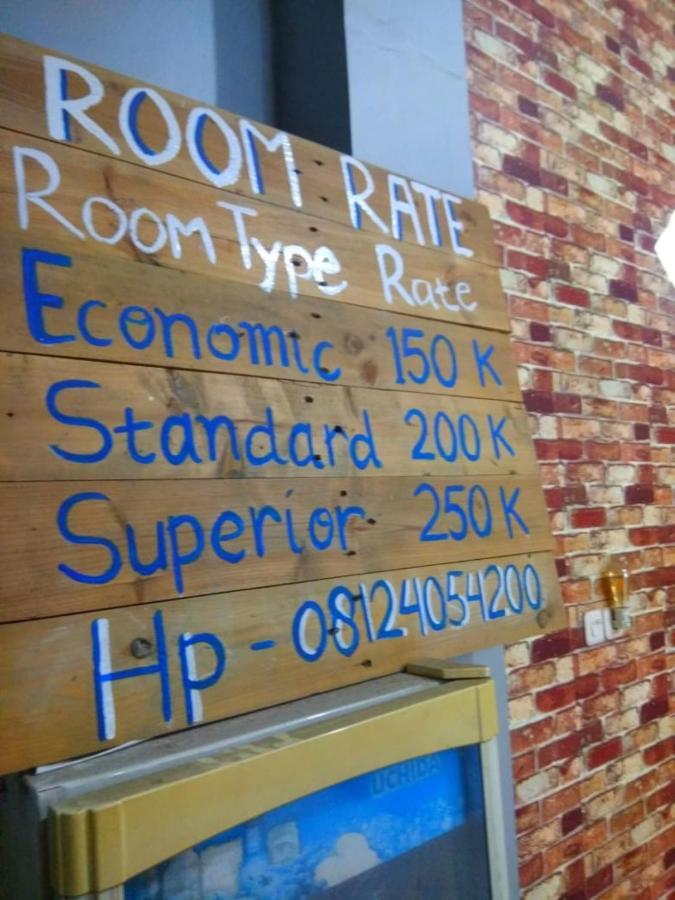 ROOM RATE
Room Type Rate
Economic 150 K
Standard 200 K
Superior 250 K
Hp - 08124054200
UCHIDA